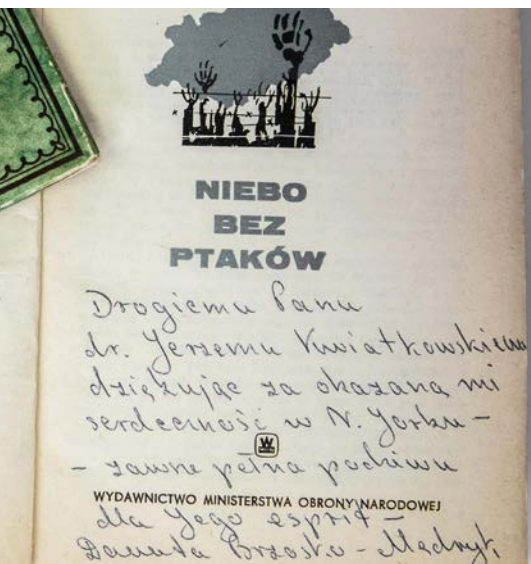 NIEBO
BEZ
PTAKÓW
Drogiemu Panu
dr. Jerzemu Kwiatkowskiemu
dziękując za okazaną mi
serdeczność w N. Yorku -
- zawsze pełna podziwu
WYDAWNICTWO MINISTERSTWA OBRONY NARODOWEJ
dla Jego esprit -
Danuta Brzosko-Mędryk